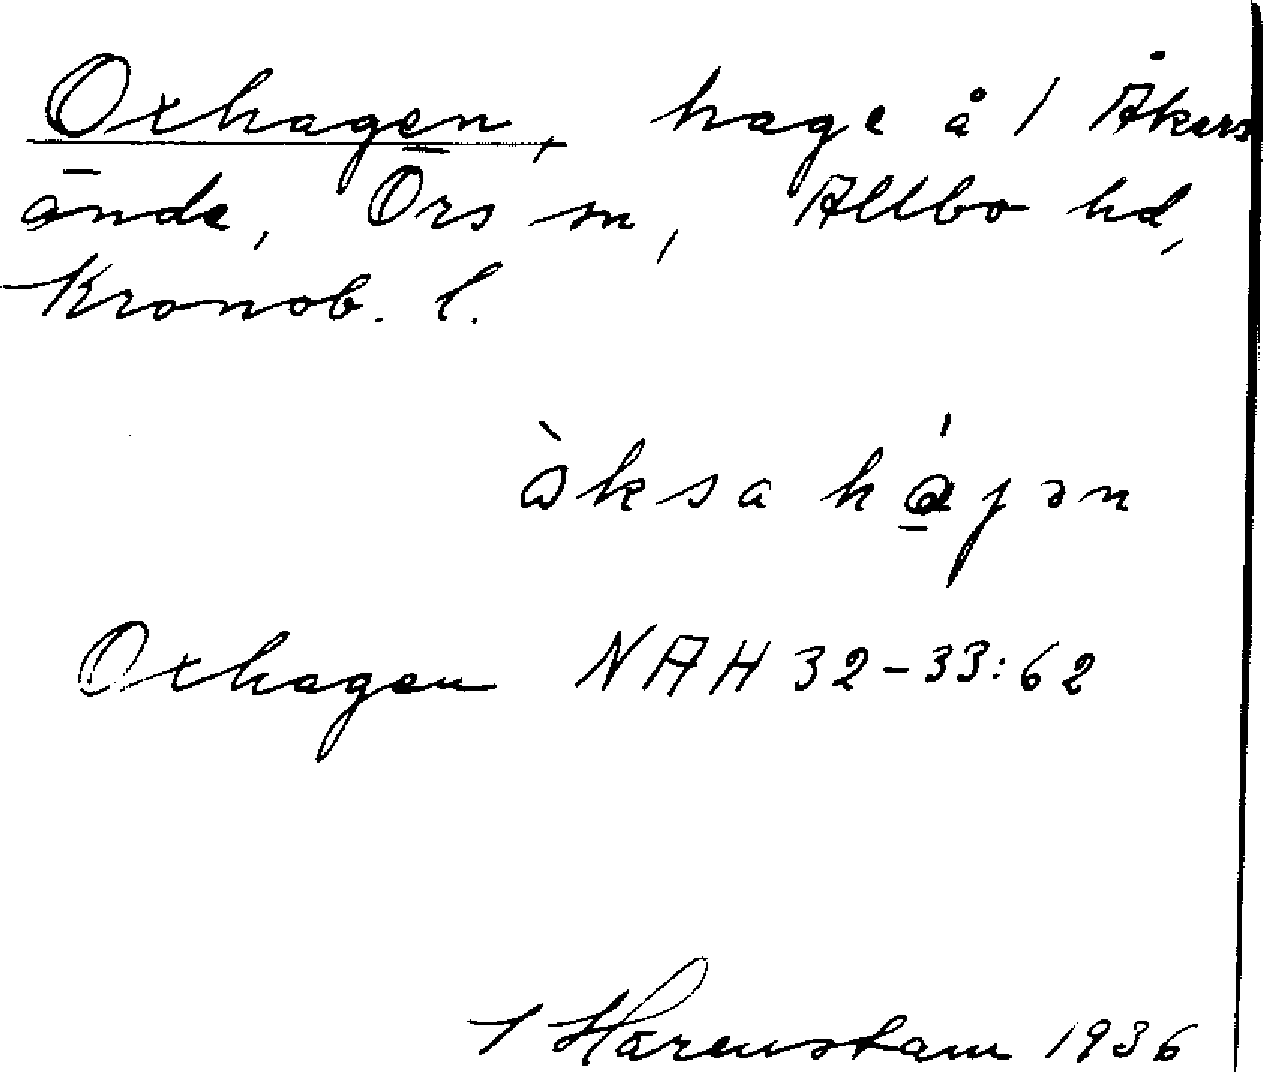 Oxhagen, hage å 1 Åkers
ände, Örs sn, Allbo hd,
Kronob. l.
òksa hájən
Oxhagen NAH 32-33:62
I Härenstam 1936